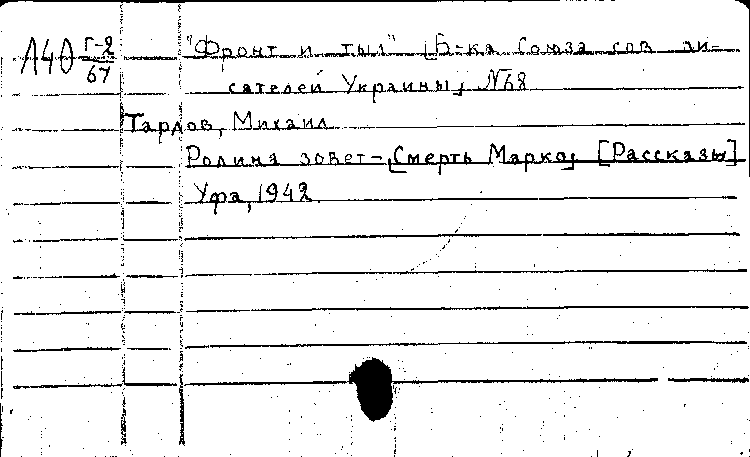 Л40 Г-2/67
"Фронт и тыл" [Б-ка Союза сов пи-
сателей Украины, №68
Тардов, Михаил
Родина зовет-, [Смерть Марко, [Рассказы]
Уфа, 1942.